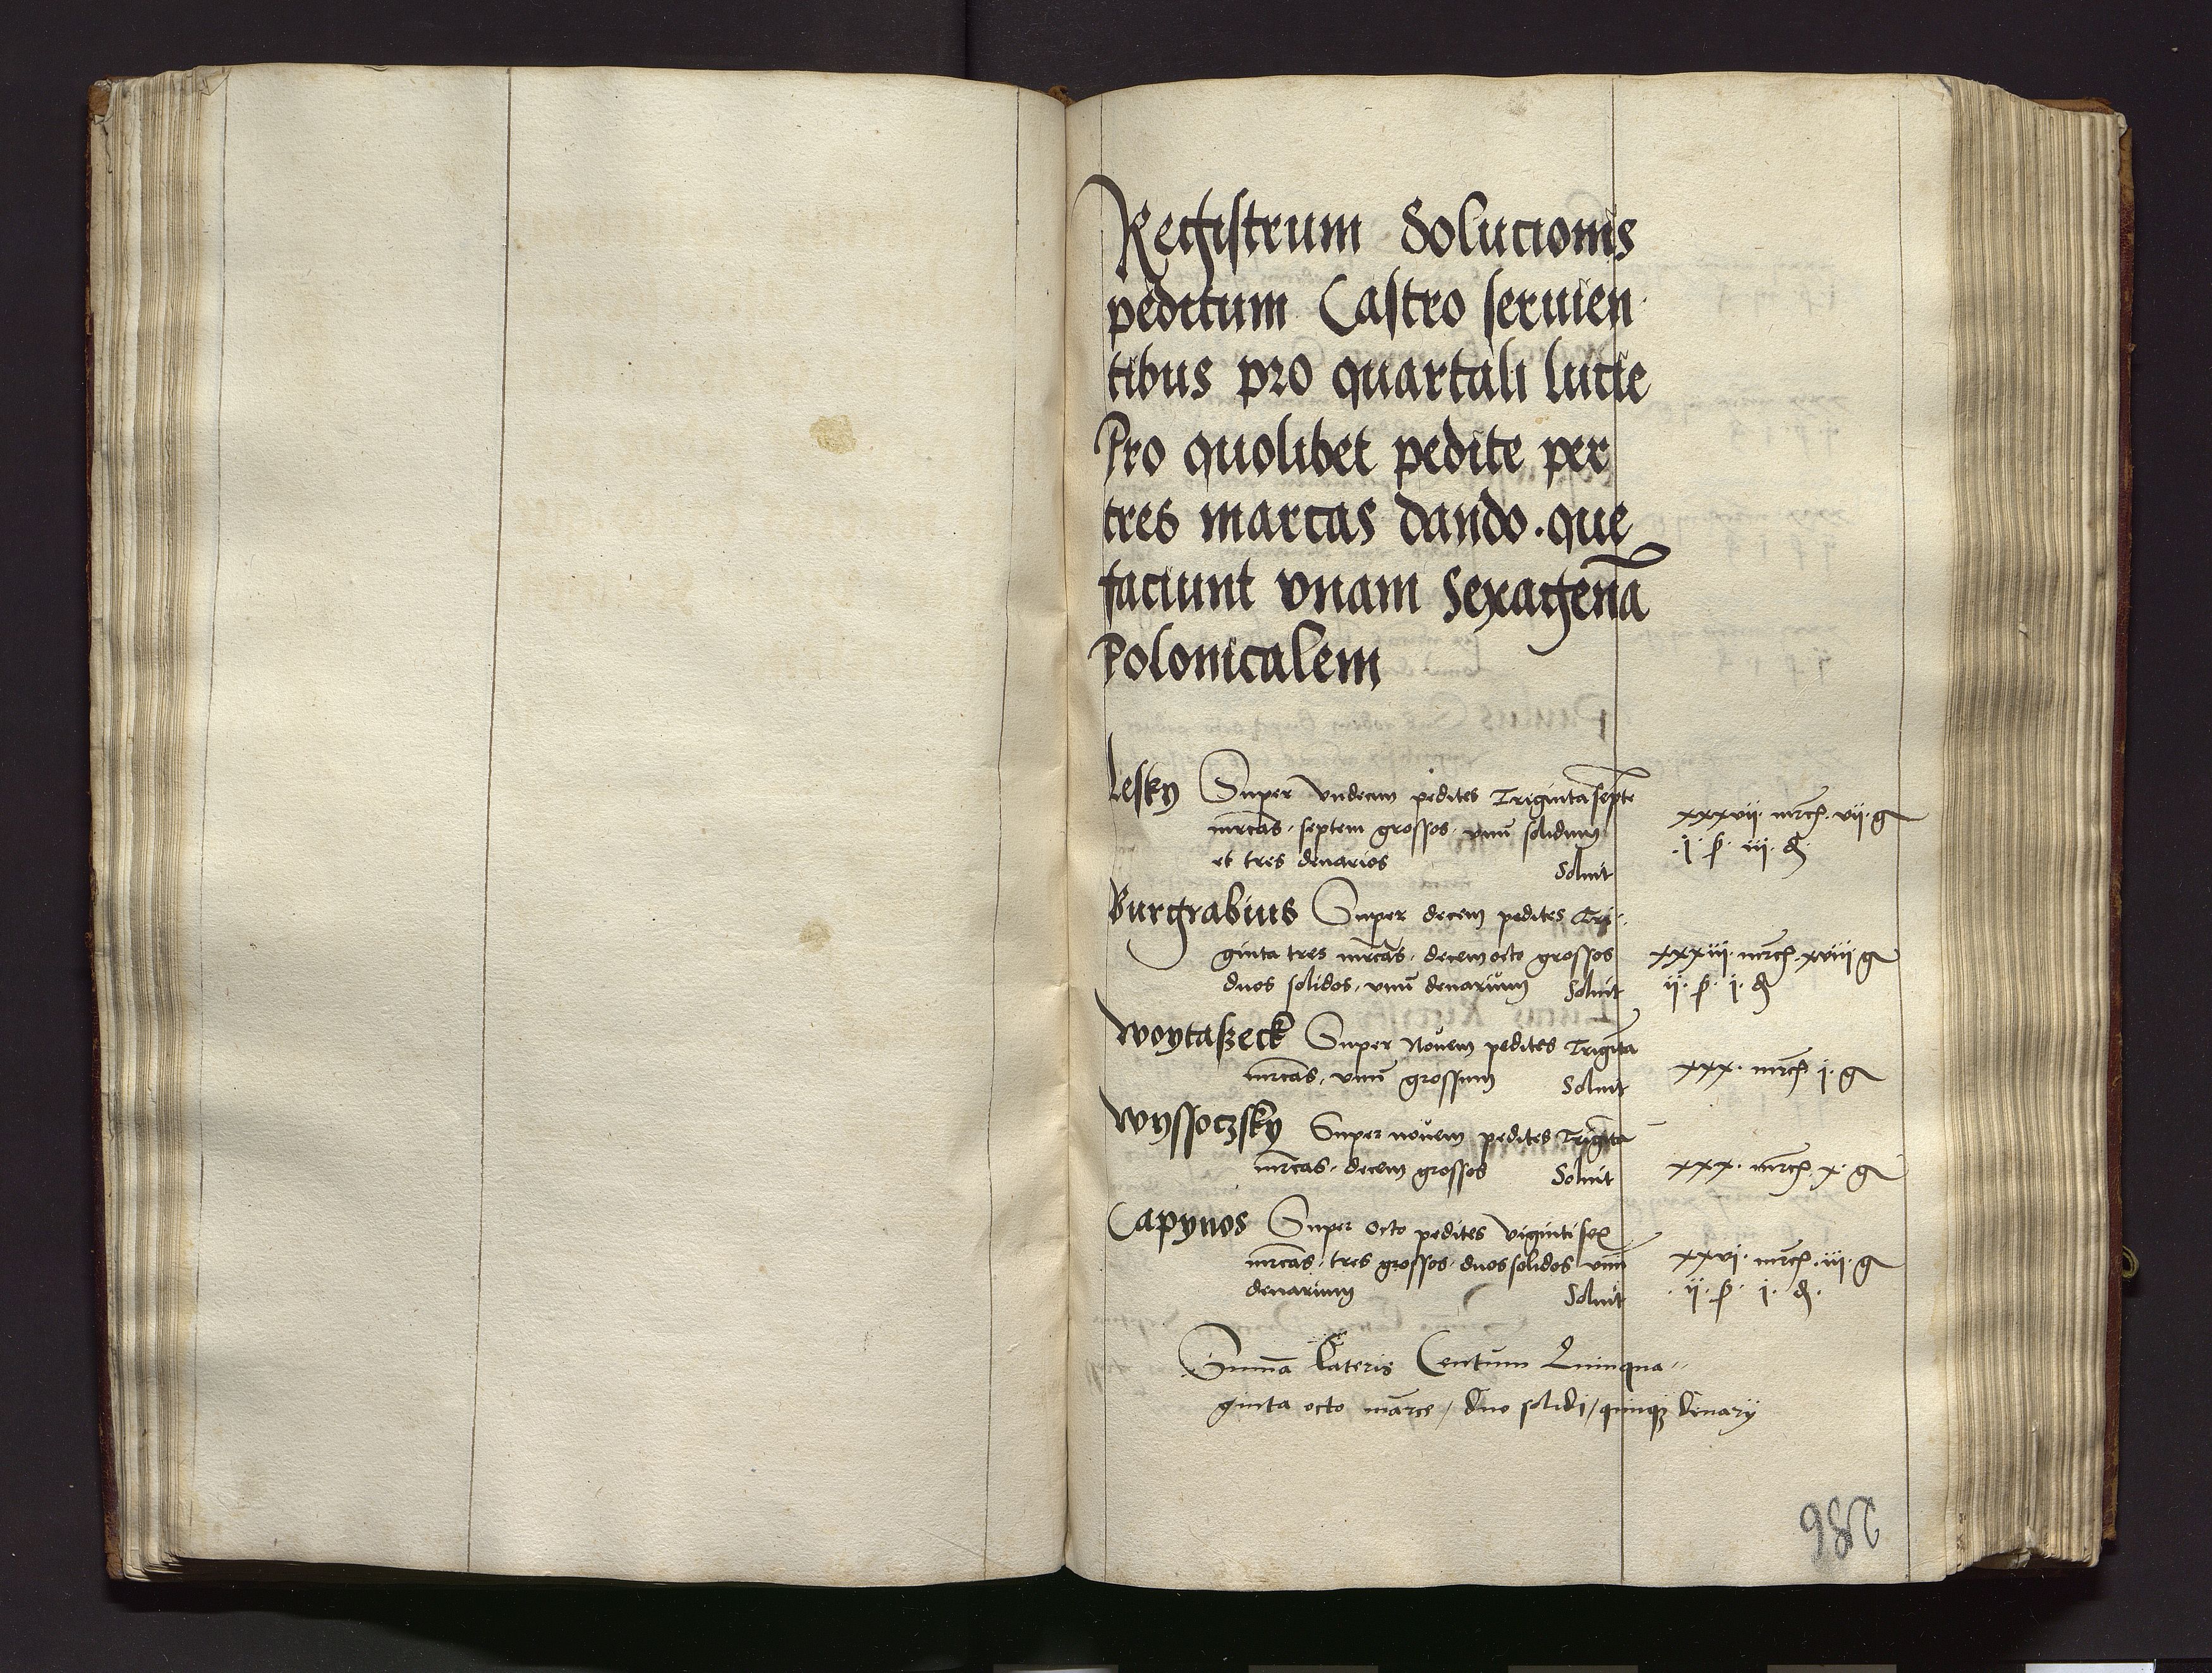 Registrum Solucionis
peditum Castro seruien
tibus pro quartali lucie
Pro quolibet pedite per
tres marcas dando. que
faciunt vnam Sexagenā
Polonicalem
Lesky Super vndecim pedites Triginta septē
mrcas. septem grossos. vnū solidum
et tres denarios Soluit
xxxvii. mrc. vii. g
.i. ß. iii. d.
Burgrabius Super decem pedites Tri-
ginta tres mrcas. decem octo grossos
duos solidos. vnū denarium Soluit
xxxiii. mrc. xviii. g
ii. ß. i. d
Woytaßeck Super Nouem pedites Triginta
mrcas. vnū grossum Soluit
xxx. mrc i. g
Wyssoczsky Super nouem pedites Triginta
mrcas. decem grossos Soluit
xxx. mrc. x. g
Capynos Super octo pedites viginti sex
mrcas. tres grossos. duos solidos vnū
denarium Soluit
xxvi. mrc. iii. g
. ii. ß. i. d.
Summa Lateris Centum Quinqua-
ginta octo marce / duo solidi / quinqz denarij
286